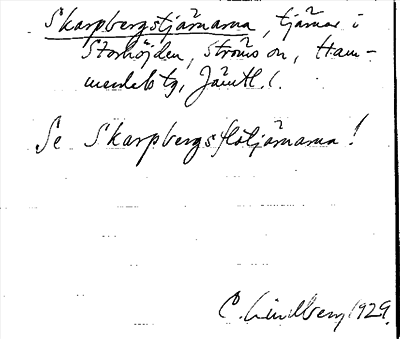 Skarpbergstjärnarna, tjärnar i
Storhöjden, Ströms sn, Ham-
merdals tg, Jämtl.l.
Se Skarpbergsflotjärnarna!
C. Lindberg 1929.